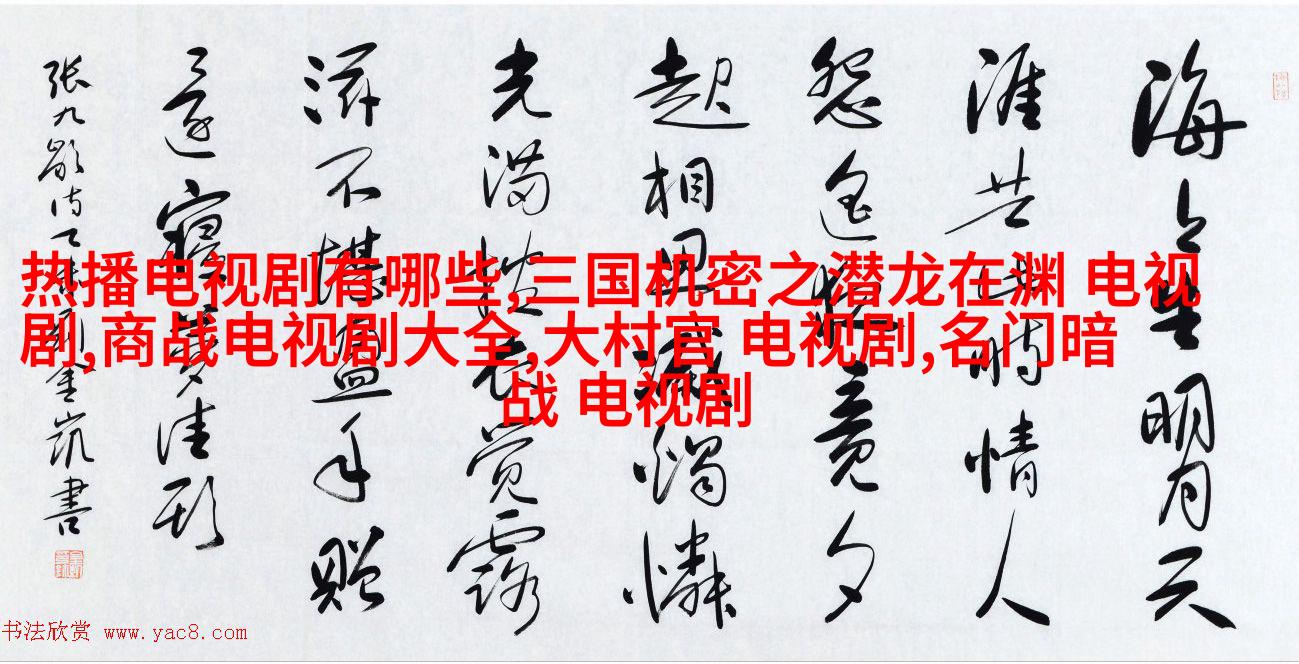 热播电视剧有哪些,三国机密之潜龙在渊 电视
剧,商战电视剧大全,大村官 电视剧,名门暗
战 电视剧
海上生明月天
涯共此時情人
怨遥夜竟夕
起相思滅燭憐
光满披衣覚露
滋不堪盈手赠
還寝夢佳期
张九龄诗
凯書
书法欣赏 www.yac8.com